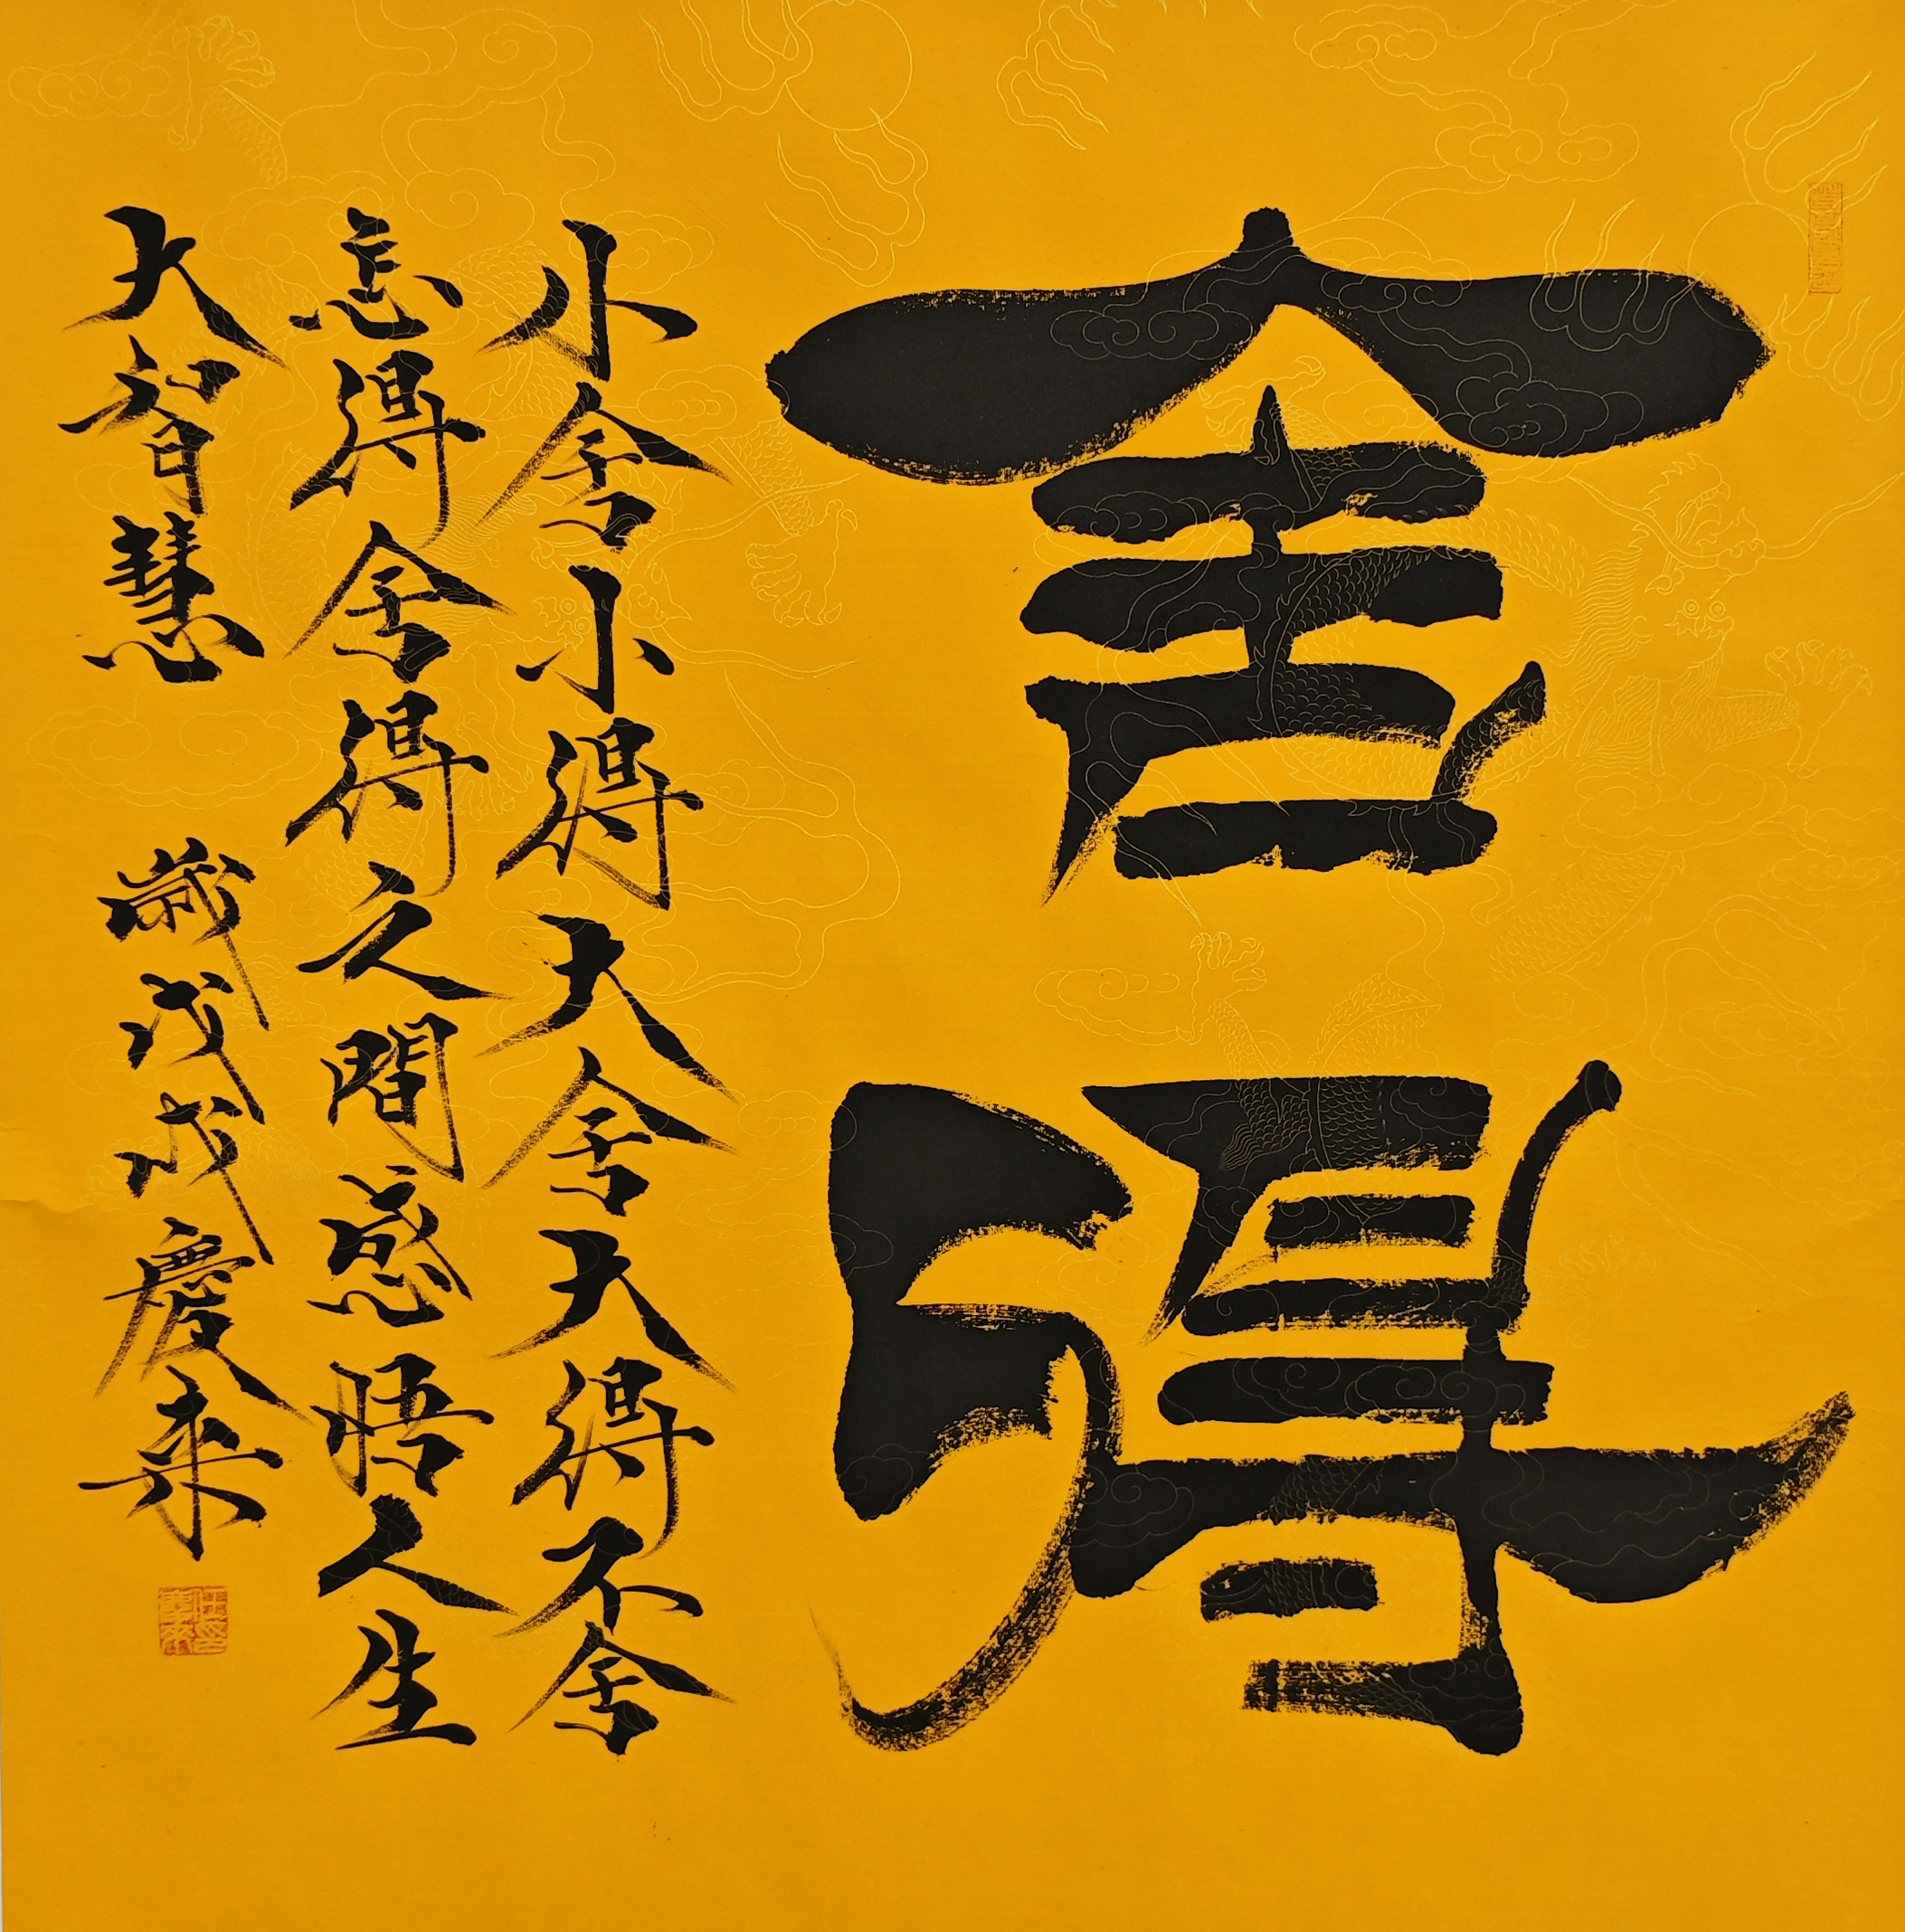 舍得
小舍小得大舍大得不舍
怎得舍得之間感悟人生
大智慧 歲戊戌慶來